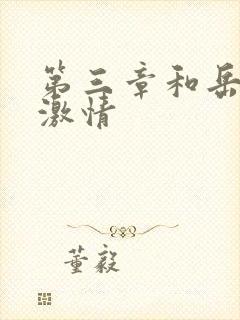 第三章和岳
激情
董毅